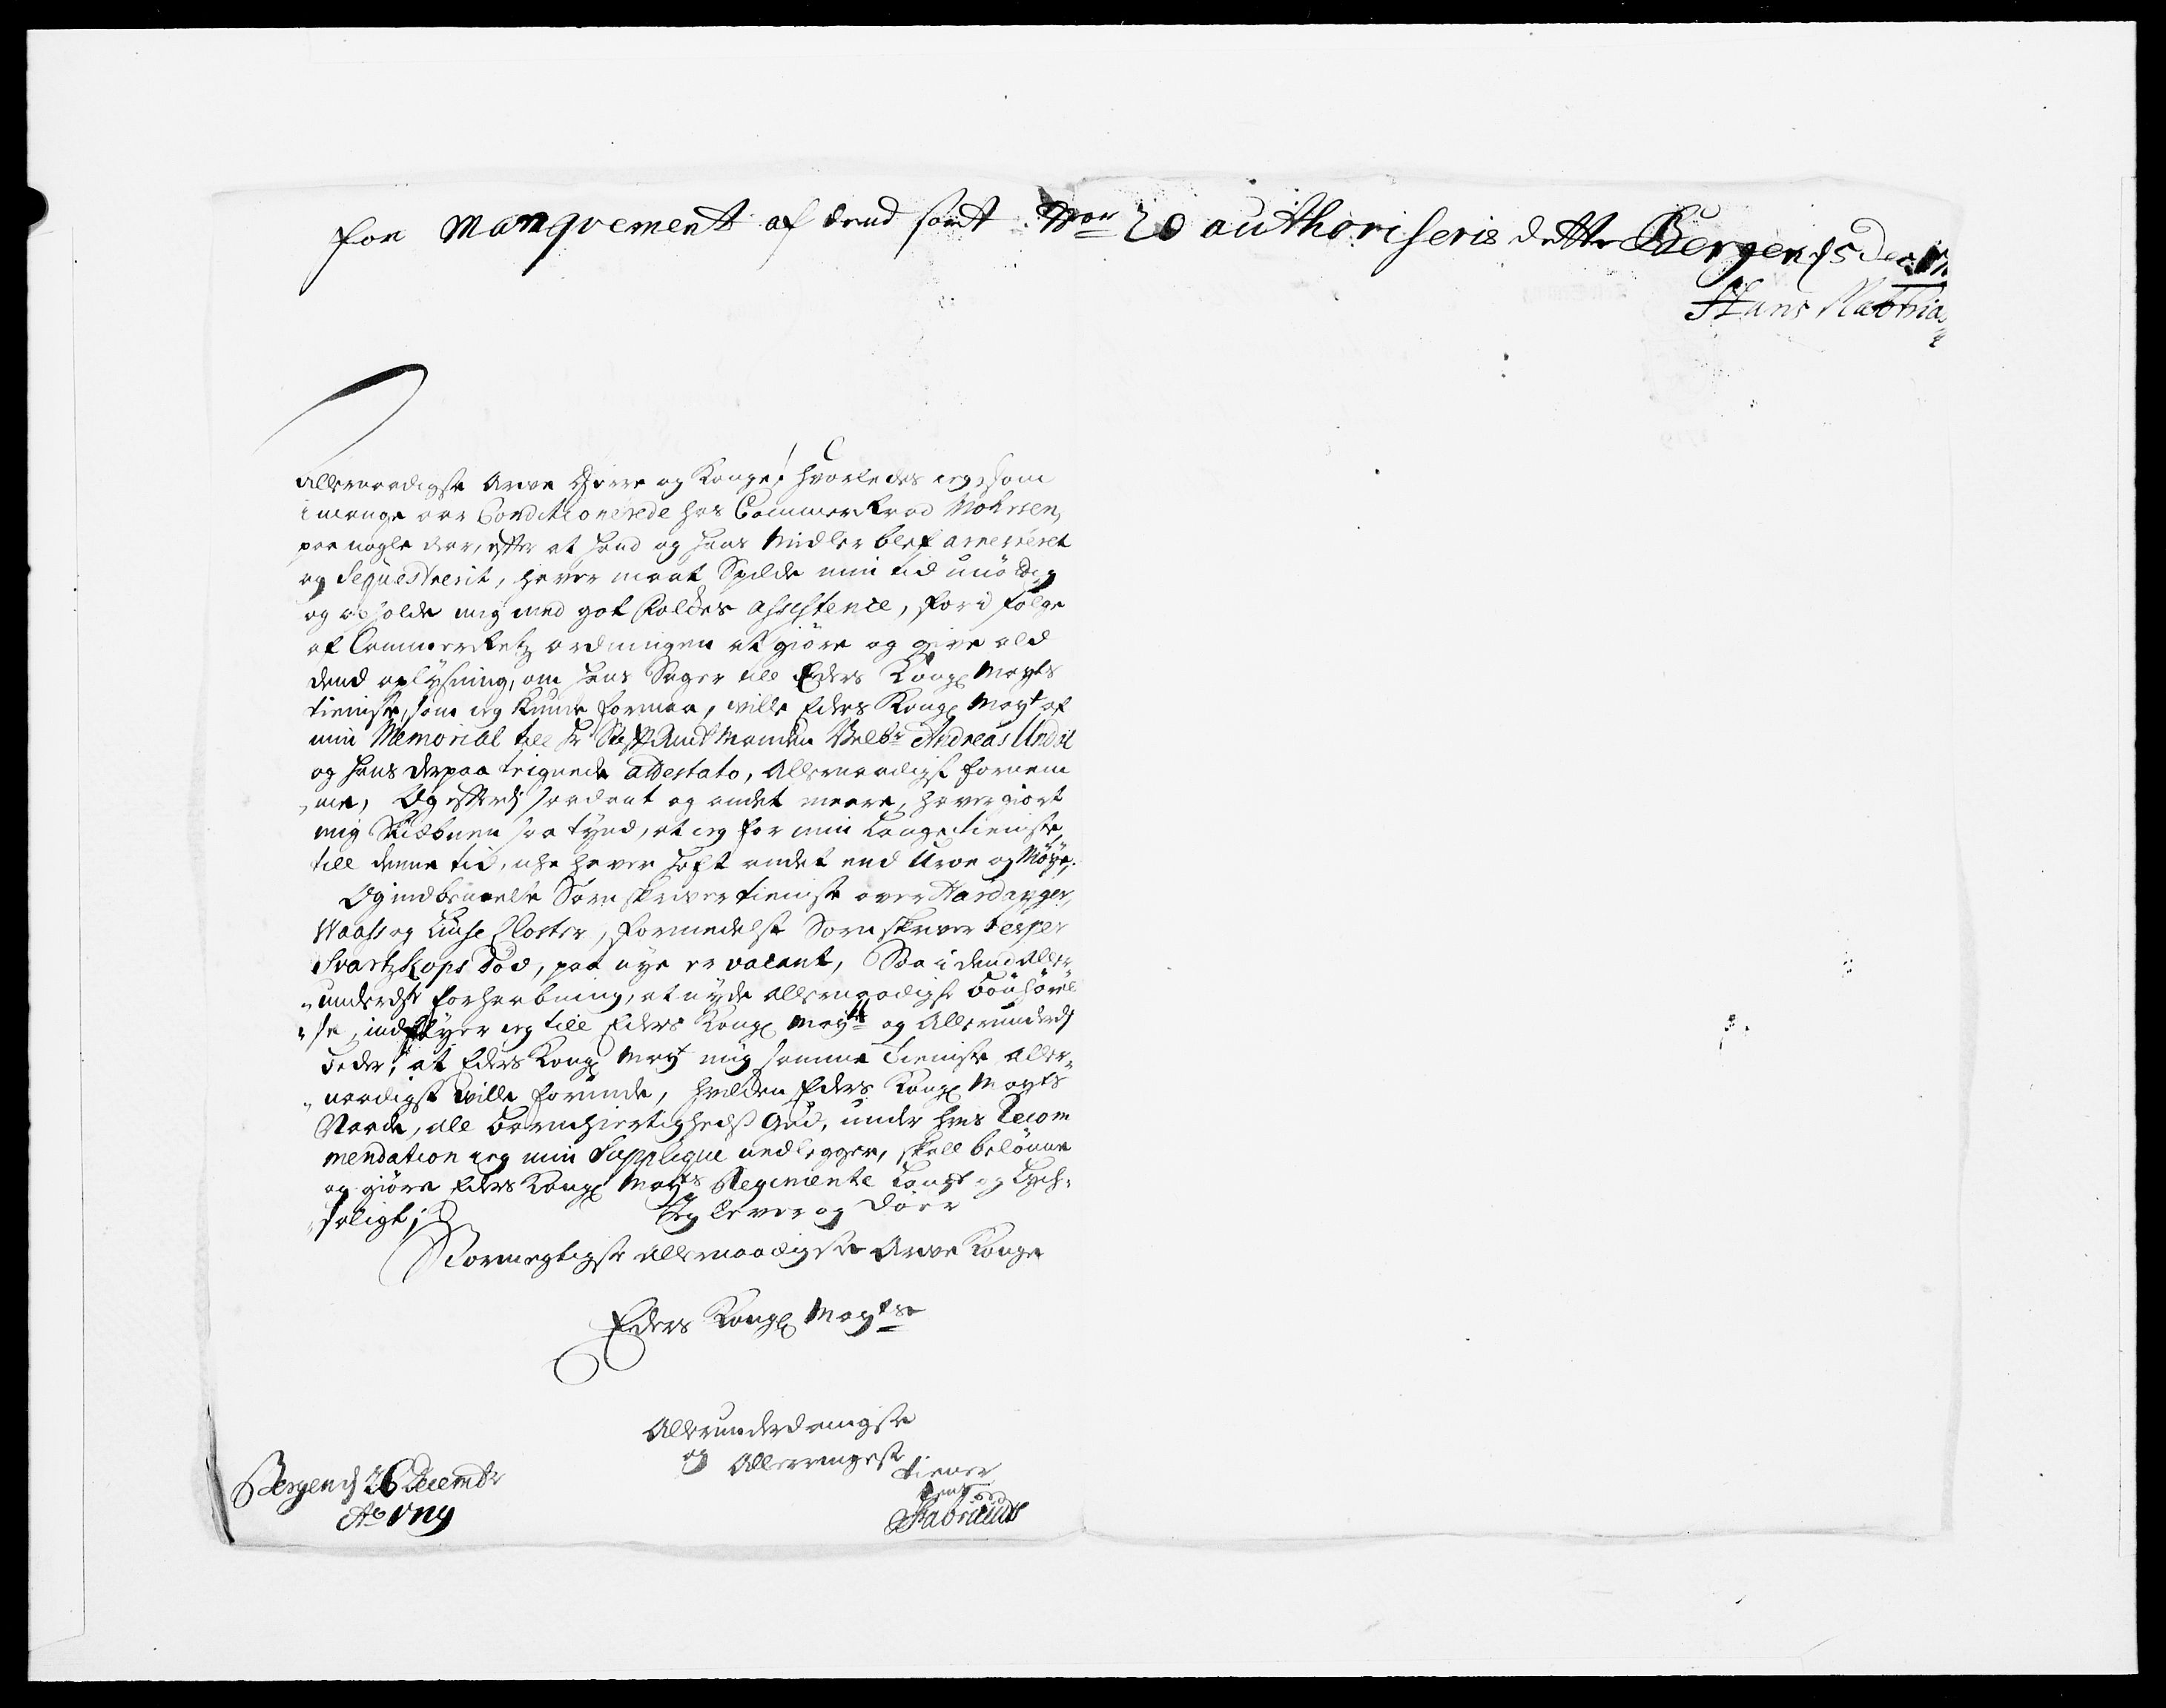 for Manqvement af dend sort No 20 authoriseris dette Bergen d 5 Dec:
Hans Matthia
Allernaadigste Arve Herre og Konge! hvorledes ieg, som
i mange aar Conditionerede hos Commerceraad Mohrsen,
paa nogle aar, efter at hand og hans Midler blef arresteret
og Sequestrerit, haver maat Spilde min tid unødig
og opholde mig med got folches assistence, for i følge
af Commerce Retz ordningen at giøre og give all
dend oplysning, om hans Sager till Eders Kongl Mayts
tieniste, som ieg kunde formaa, ville Eders Kongl Mayt af
min Memorial till Hr Stiftamtmanden Velbr Andreas Undal
og hans derpaa tegnede attestato, Allernaadigst fornem
me, Og efterdj saadant og andet meere, haver giort
mig Skiebnen saa tynd, at ieg for min lange tieniste,
till denne tid, iche haver haft andet end Uroe og Møye.
Og imidlertid Sorenskriver tieniste over Hardanger,
Waas og Liuse Closter, formedelst Sorenskriver Jesper
Svartzkops død, paa nye er vacant, Saa i dend Aller
underdst forhaabning, at nyde allernaadigst bønhørel
se, indflyer ieg till Eders Kongl Mayts og Allerunderdst
beder, at Eders Kongl Mayt mig samme tieniste aller
naadigst ville forunde, hvilden Eders Kongl Mayts
Naade, all barmhiertigheds Gud, under hvis Recom
mendation ieg min Supplique nedlegger, skall belønne
og giøre Eders Kongl Mayts Regimente langt og Lych
saligt; Jeg lever og døer
Stormegtigste allernaadigste Arve Konge
Eders Kongl Mayts
Allerunderdanigste
og Allerringeste
tiener
Fabritius
Bergen d 26 Decembr
Ao 1719